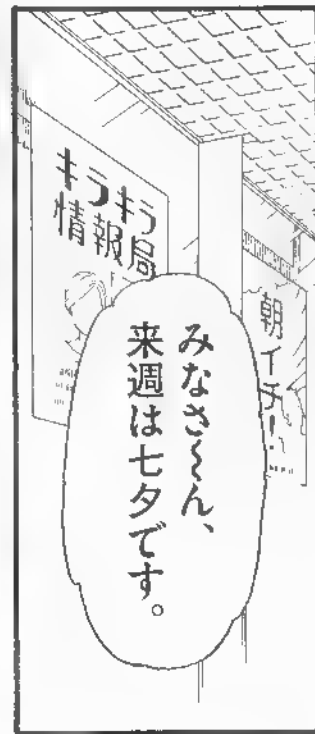 キラキラ
情報局
朝イチ!
みなさ〜ん、
来週は七夕です。